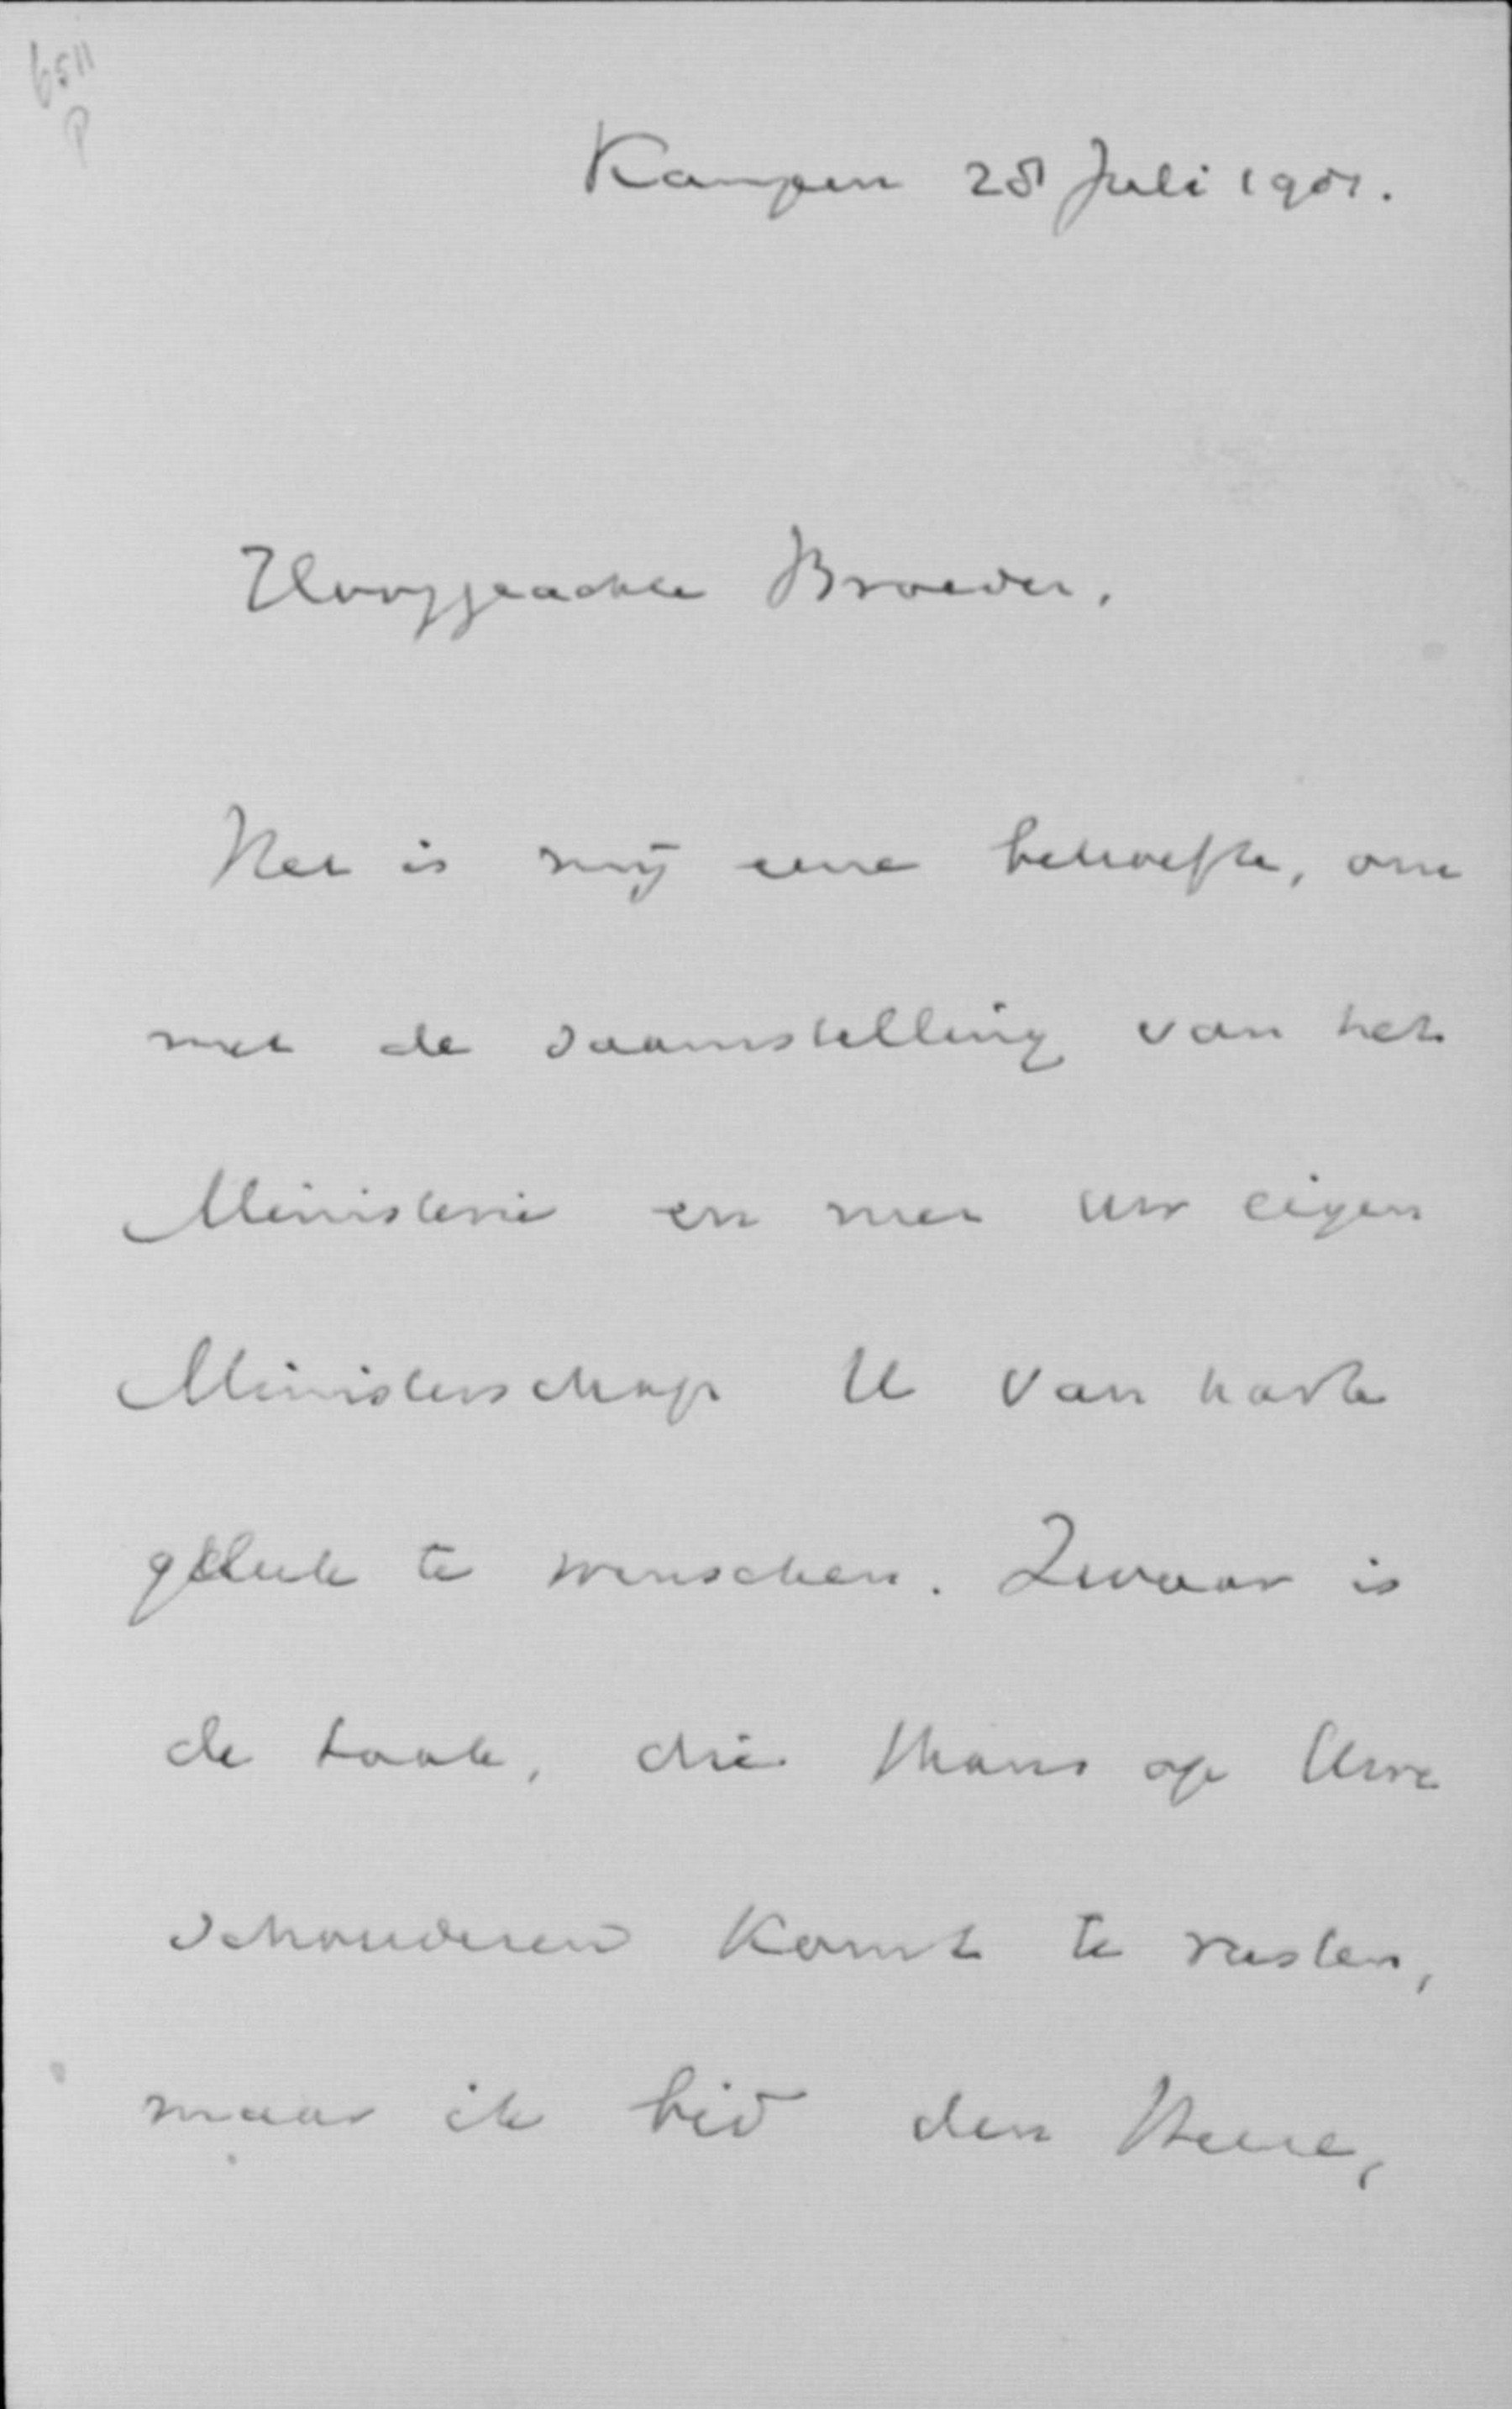 6511
P
Kampen 28 Juli 1901.
Hooggeachte Broeder,
Het is mij eene behoefte, om
met de saamstelling van het
Ministerie en met uw eigen
Ministerschap U van harte
geluk te wenschen. Zwaar is
de taak, die thans op Uwe
schouderen komt te rusten,
maar ik bid den Heere,